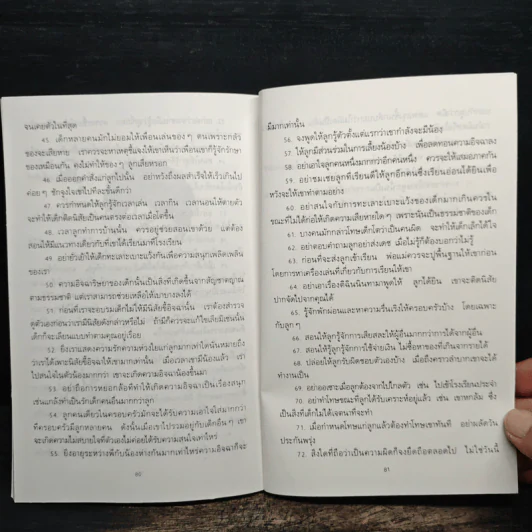 จนเคยตัวในที่สุด
45. เด็กหลายคนมักไม่ยอมให้เพื่อนเล่นของๆ ตนเพราะกลัว
ของจะเสียหาย เราควรจะหาเหตุชี้แจงให้เขาเห็นว่าเพื่อนเขาก็รู้จักรักษา
ของเหมือนกัน คงไม่ทำให้ของๆ ลูกเสียหรอก
46. เมื่อออกคำสั่งแก่ลูกไปนั้น อย่าหวังถึงผลสำเร็จให้เร็วเกินไป
ค่อยๆ ชักจูงใจเขาไปทีละขั้นดีกว่า
47. ควรกำหนดให้ลูกรู้จักเวลาเล่น เวลากิน เวลานอนให้ตายตัว
จะทำให้เด็กติดนิสัยเป็นคนตรงต่อเวลาเมื่อโตขึ้น
48. เวลาลูกทำการบ้านนั้น ควรอยู่ช่วยสอนเขาด้วย แต่ต้อง
สอนให้มีแนวทางเดียวกับที่เขาได้เรียนมาที่โรงเรียน
49. อย่ายั่วเย้าให้เด็กทะเลาะเบาะแว้งกันเพื่อความสนุกเพลิดเพลิน
ของเรา
50. ความอิจฉาริษยาของเด็กนั้นเป็นสิ่งที่เกิดขึ้นจากสัญชาตญาณ
ตามธรรมชาติ แต่เราสามารถช่วยเหลือให้เบาบางลงได้
51. ก่อนที่เราจะอบรมเด็กไม่ให้มีนิสัยขี้อิจฉานั้น เราต้องสำรวจ
ดูตัวเองก่อนว่าเรามีนิสัยดังกล่าวหรือไม่ ถ้ามีก็ควรจะแก้ไขเสียมิเช่นนั้น
เด็กก็จะเลียนแบบทำตามคุณอยู่เรื่อย
52. ยิ่งเราแสดงความรักความห่วงใยแก่ลูกมากเท่าใดนั่นหมายถึง
ว่าเราได้เพาะนิสัยขี้อิจฉาให้เขามากเท่านั้น เมื่อเวลาเขามีน้องแล้ว เรา
ไปสนใจในตัวน้องมากกว่า เขาจะเกิดความอิจฉาน้องขึ้นมา
53. อย่าถือการหยอกล้อที่ทำให้เกิดความอิจฉาเป็นเรื่องสนุก
เช่นแกล้งทำเป็นรักเด็กคนอื่นมากกว่าลูก
54. ลูกคนเดียวในครอบครัวมักจะได้รับความเอาใจใส่มากกว่า
ที่ครอบครัวมีลูกหลายคน ดังนั้นเมื่อเขาไปรวมอยู่กับเด็กอื่นๆ เขา
จะเกิดความไม่สบายใจที่ตัวเองไม่ค่อยได้รับความสนใจเท่าไหร่
55. ยิ่งอายุระหว่างพี่กับน้องห่างกันมากเท่าไหร่ความอิจฉาก็จะ
80
มีมากเท่านั้น
56. จงพูดให้ลูกรู้ตัวตั้งแต่แรกว่าเขากำลังจะมีน้อง
57. ให้ลูกมีส่วนร่วมในการเลี้ยงน้องบ้าง เพื่อลดทอนความอิจฉาลง
58. อย่าเอาใจลูกคนหนึ่งมากกว่าอีกคนหนึ่ง ควรจะให้เสมอภาคกัน
59. อย่าชมเชยลูกที่เรียนดีให้ลูกอีกคนซึ่งเรียนอ่อนได้ยินเพื่อ
หวังจะให้เขาทำตามอย่าง
60. อย่าสนใจกับการทะเลาะเบาะแว้งของเด็กมากเกินควรใน
ขณะที่ไม่ได้ก่อให้เกิดความเสียหายใดๆ เพราะนั่นเป็นธรรมชาติของเด็ก
61. บางคนมักกล่าวโทษเด็กโตว่าเป็นคนผิด จะทำให้เด็กเสียใจได้
62. อย่าตอบคำถามลูกอย่างส่งเดช เมื่อไม่รู้ก็ต้องบอกว่าไม่รู้
63. ก่อนที่จะส่งลูกเข้าเรียน พ่อแม่ควรจะปูพื้นฐานให้เขาก่อน
โดยการหาเครื่องเล่นที่เกี่ยวกับการเรียนให้เขา
64. อย่าเอาเรื่องตีฉินนินทามาพูดให้ ลูกได้ยิน เขาจะติดนิสัย
ปากจัดไปจากคุณได้
65. รู้จักพักผ่อนและหาความรื่นเริงให้ครอบครัวบ้าง โดยเฉพาะ
กับลูกๆ
66. สอนให้ลูกรู้จักการเสียสละให้ผู้อื่นมากกว่าการได้จากผู้อื่น
67. สอนให้ลูกรู้จักการใช้จ่ายเงิน ไม่ซื้อหาของที่เกินจากรายได้
68. ปล่อยให้ลูกรับผิดชอบตัวเองบ้าง เมื่อถึงคราวลำบากเขาจะได้
ทำงานเป็น
69. อย่าออเซาะเมื่อลูกต้องจากไปไกลตัว เช่น ไปเข้าโรงเรียนประจำ
70. อย่าทำโทษขณะที่ลูกได้รับเคราะห์อยู่แล้ว เช่น เขาหกล้ม ซึ่ง
เป็นสิ่งที่เด็กไม่ได้เจตนาที่จะทำ
71. เมื่อกำหนดโทษแก่ลูกแล้วต้องทำโทษเขาทันที อย่าผลัดวัน
ประกันพรุ่ง
72. สิ่งใดที่ถือว่าเป็นความผิดก็จงยึดถือตลอดไป ไม่ใช่วันนี้
81